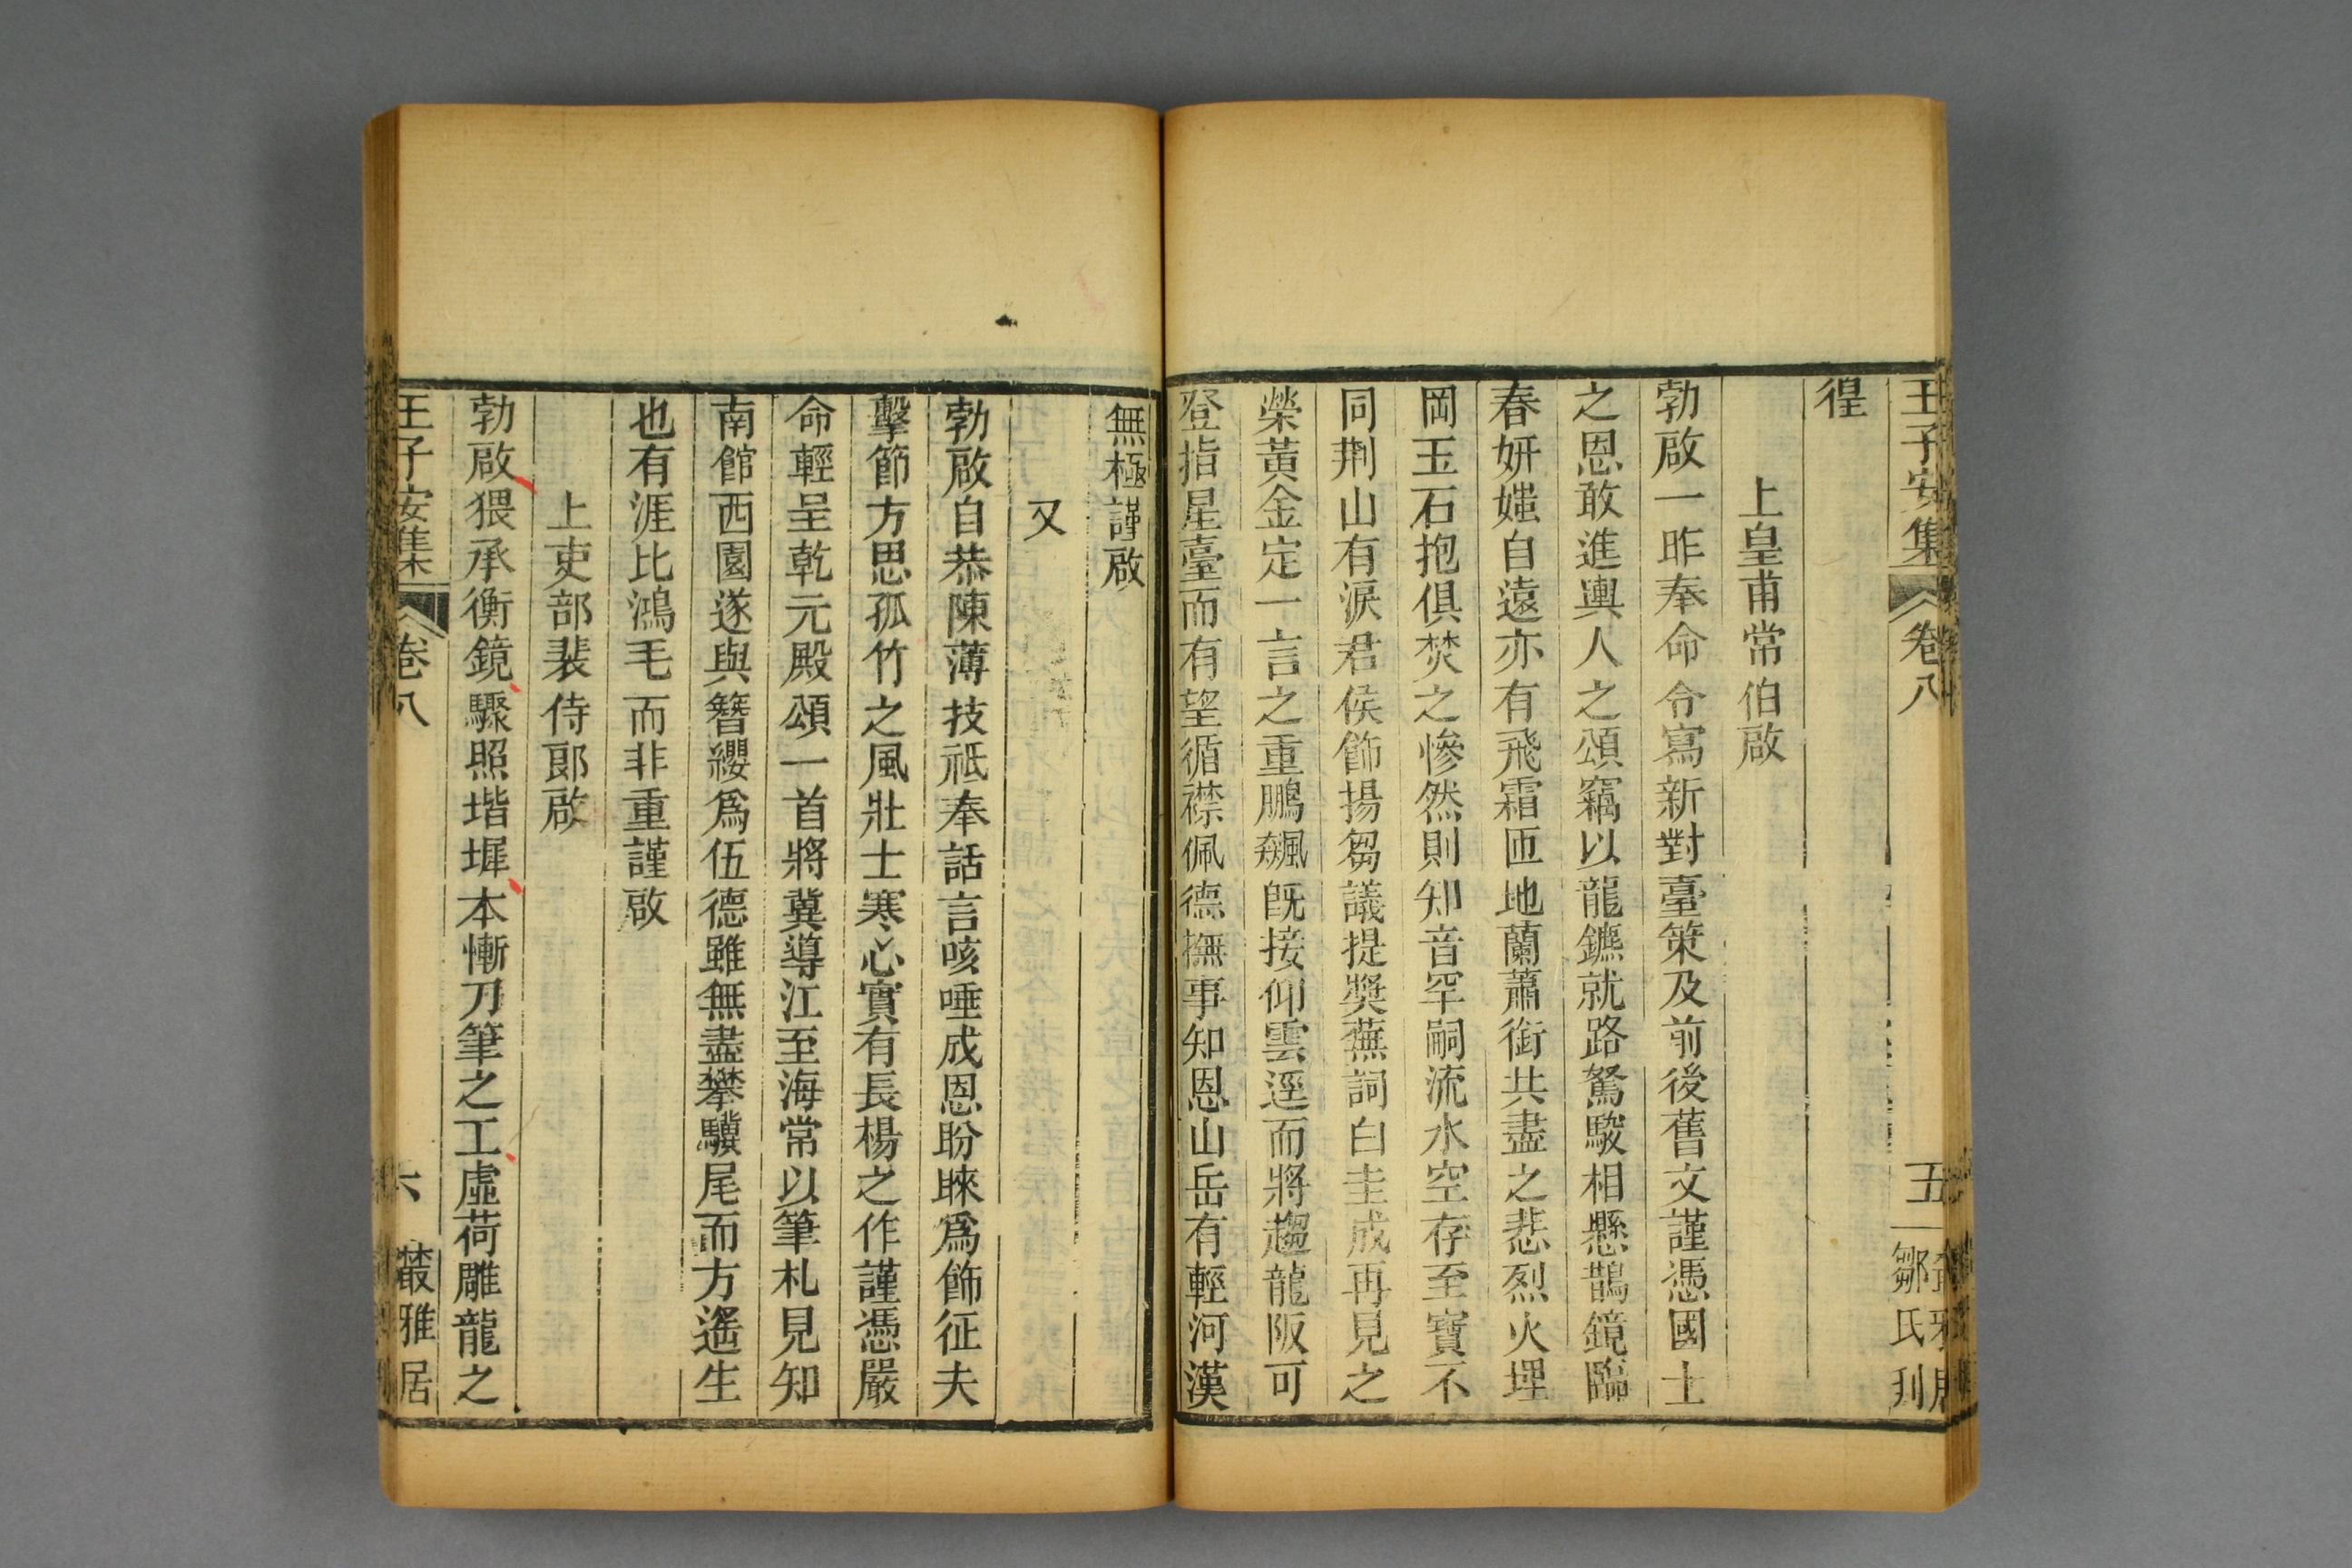 王子安集 卷八 五 鄒氏刋
徨
上皇甫常伯啟
勃啟一昨奉命令寫新對臺策及前後舊文謹憑國士
之恩敢進輿人之頌竊以龍鑣就路駑駿相懸鵲鏡臨
春妍媸自遠亦有飛霜匝地蘭蕭銜共盡之悲烈火埋
岡玉石抱俱焚之慘然則知音罕嗣流水空存至寶不
同荆山有淚君侯飾揚芻議提奬蕪詞白圭成再見之
榮黃金定一言之重鵬飆旣接仰雲逕而將趨龍阪可
登指星臺而有望循襟佩德撫事知恩山岳有輕河漢
無極謹啟
又
勃啟自恭陳薄技祗奉話言咳唾成恩盼睞爲飾征夫
擊節方思孤竹之風壯士寒心實有長楊之作謹憑嚴
命輕呈乾元殿頌一首將冀導江至海常以筆札見知
南館西園遂與簪纓爲伍德雖無盡攀驥尾而方遙生
也有涯比鴻毛而非重謹啟
上吏部裴侍郞啟
勃啟猥承衡鏡驟照堦墀本慚刀筆之工虛荷雕龍之
王子安集 卷八 六 叢雅居